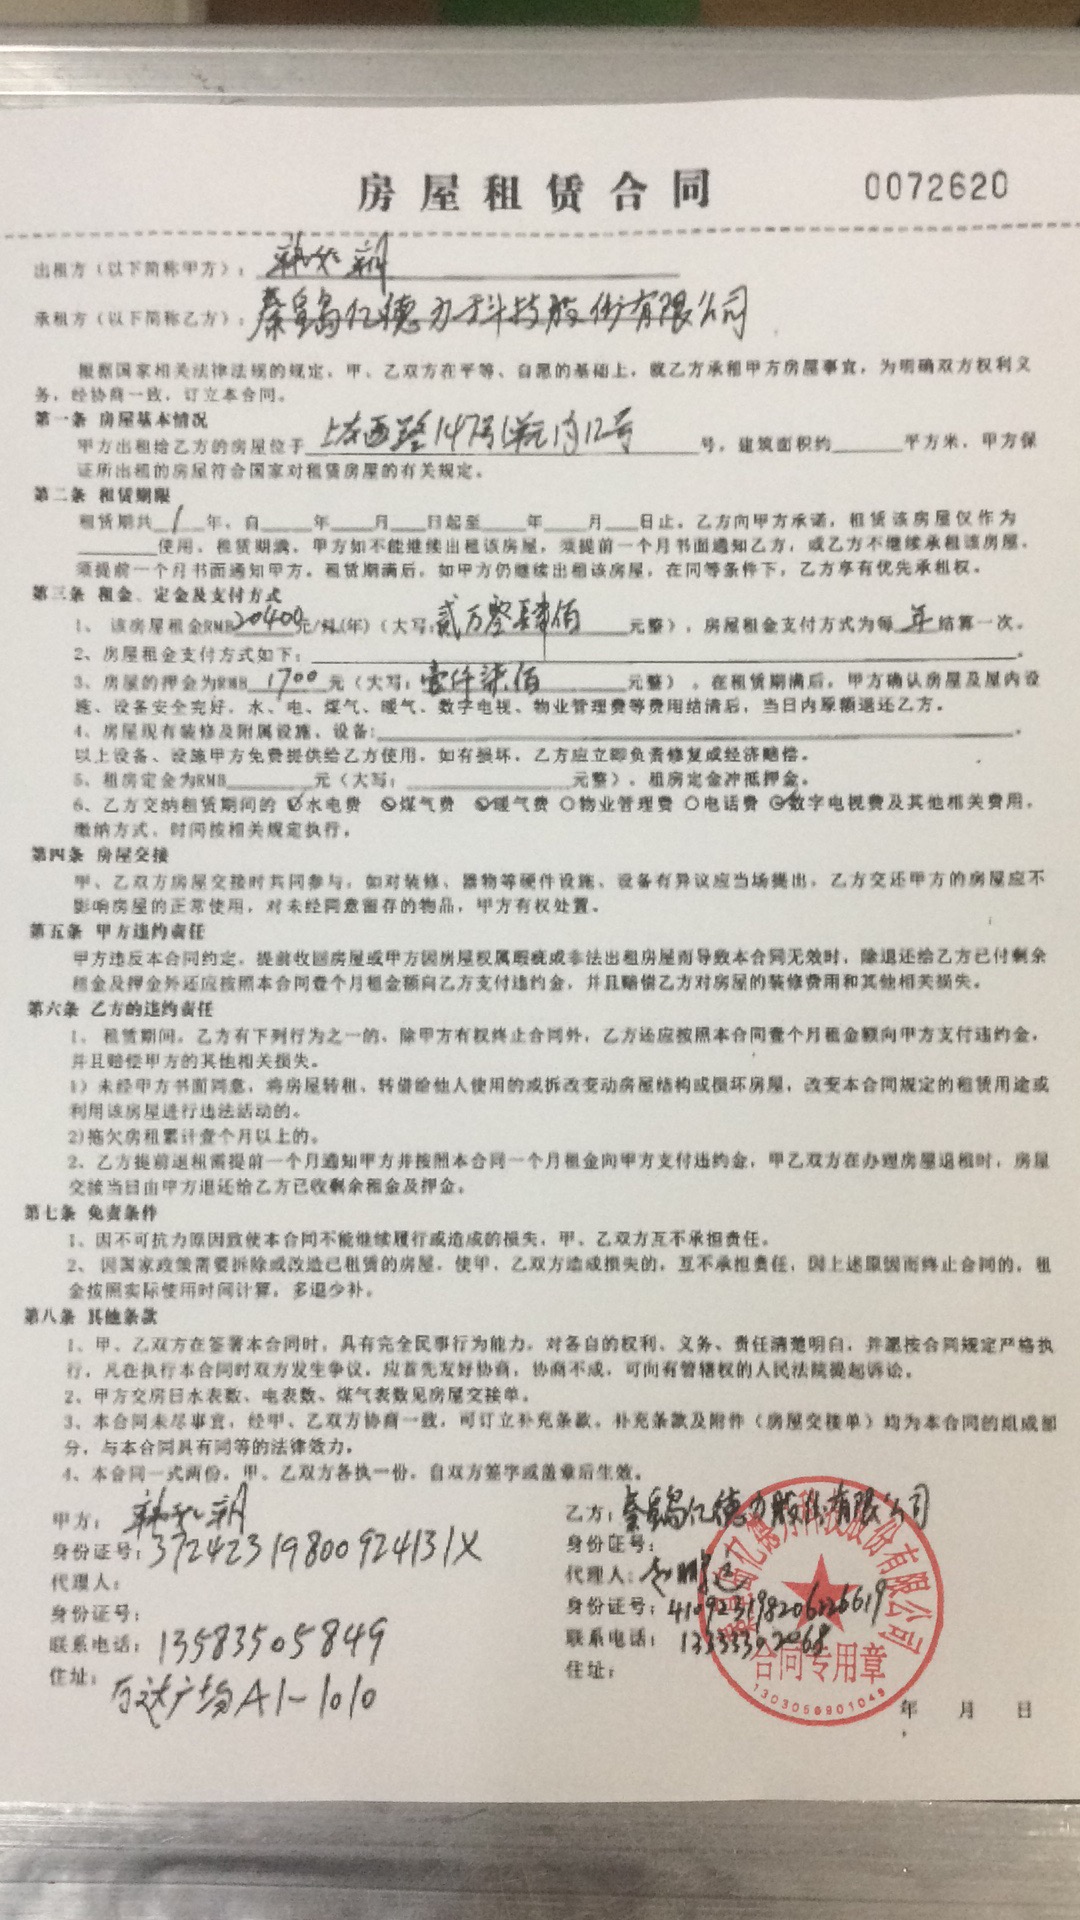 房屋租赁合同 0072620
出租方（以下简称甲方）：
承租方（以下简称乙方）：秦皇岛亿德力科技股份有限公司
根据国家相关法律法规的规定，甲、乙双方在平等、自愿的基础上，就乙方承租甲方房屋事宜，为明确双方权利义
务，经协商一致，订立本合同。
第一条 房屋基本情况
甲方出租给乙方的房屋位于 西路147号1单元 12号 号，建筑面积约 平方米，甲方保
证所出租的房屋符合国家对租赁房屋的有关规定。
第二条 租赁期限
租赁期共 1 年，自 年 月 日起至 年 月 日止，乙方向甲方承诺，租赁该房屋仅作为
使用，租赁期满，甲方如不能继续出租该房屋，须提前一个月书面通知乙方，或乙方不继续承租该房屋，
须提前一个月书面通知甲方。租赁期满后，如甲方仍继续出租该房屋，在同等条件下，乙方享有优先承租权。
第三条 租金、定金及支付方式
1、该房屋租金RMB 20400 元/月(年)（大写：贰万零肆佰 元整），房屋租金支付方式为每 年 结算一次。
2、房屋租金支付方式如下： 。
3、房屋的押金为RMB 1700 元（大写：壹仟柒佰 元整），在租赁期满后，甲方确认房屋及屋内设
施、设备安全完好，水、电、煤气、暖气、数字电视、物业管理费等费用结清后，当日内原额退还乙方。
4、房屋现有装修及附属设施、设备: 。
以上设备、设施甲方免费提供给乙方使用，如有损坏，乙方应立即负责修复或经济赔偿。
5、租房定金为RMB 元（大写： 元整），租房定金冲抵押金。
6、乙方交纳租赁期间的 ☑水电费 ☑煤气费 ☑暖气费 ○物业管理费 ○电话费 ☑数字电视费及其他相关费用，
缴纳方式、时间按相关规定执行。
第四条 房屋交接
甲、乙双方房屋交接时共同参与，如对装修、器物等硬件设施、设备有异议应当场提出，乙方交还甲方的房屋应不
影响房屋的正常使用，对未经同意留存的物品，甲方有权处置。
第五条 甲方违约责任
甲方违反本合同约定，提前收回房屋或甲方因房屋权属瑕疵或非法出租房屋而导致本合同无效时，除退还给乙方已付剩余
租金及押金外还应按照本合同壹个月租金额向乙方支付违约金，并且赔偿乙方对房屋的装修费用和其他相关损失。
第六条 乙方的违约责任
1、租赁期间，乙方有下列行为之一的，除甲方有权终止合同外，乙方还应按照本合同壹个月租金额向甲方支付违约金，
并且赔偿甲方的其他相关损失。
1）未经甲方书面同意，将房屋转租、转借给他人使用的或拆改变动房屋结构或损坏房屋，改变本合同规定的租赁用途或
利用该房屋进行违法活动的。
2)拖欠房租累计壹个月以上的。
2、乙方提前退租需提前一个月通知甲方并按照本合同一个月租金向甲方支付违约金，甲乙双方在办理房屋退租时，房屋
交接当日由甲方退还给乙方已收剩余租金及押金。
第七条 免责条件
1、因不可抗力原因致使本合同不能继续履行或造成的损失，甲、乙双方互不承担责任。
2、因国家政策需要拆除或改造已租赁的房屋，使甲、乙双方造成损失的，互不承担责任，因上述原因而终止合同的，租
金按照实际使用时间计算，多退少补。
第八条 其他条款
1、甲、乙双方在签署本合同时，具有完全民事行为能力，对各自的权利、义务、责任清楚明白，并愿按合同规定严格执
行，凡在执行本合同时双方发生争议，应首先友好协商，协商不成，可向有管辖权的人民法院提起诉讼。
2、甲方交房日水表数、电表数、煤气表数见房屋交接单。
3、本合同未尽事宜，经甲、乙双方协商一致，可订立补充条款，补充条款及附件（房屋交接单）均为本合同的组成部
分，与本合同具有同等的法律效力。
4、本合同一式两份，甲、乙双方各执一份，自双方签字或盖章后生效。
甲方：
身份证号：37242319800924131X
代理人：
身份证号：
联系电话：13583505849
住址：万达广场A1-1010
乙方：秦皇岛亿德力股份有限公司
身份证号：
代理人：
身份证号：410923198206226619
联系电话：
住址：
年 月 日
秦皇岛亿德力科技股份有限公司
合同专用章
1303056901049